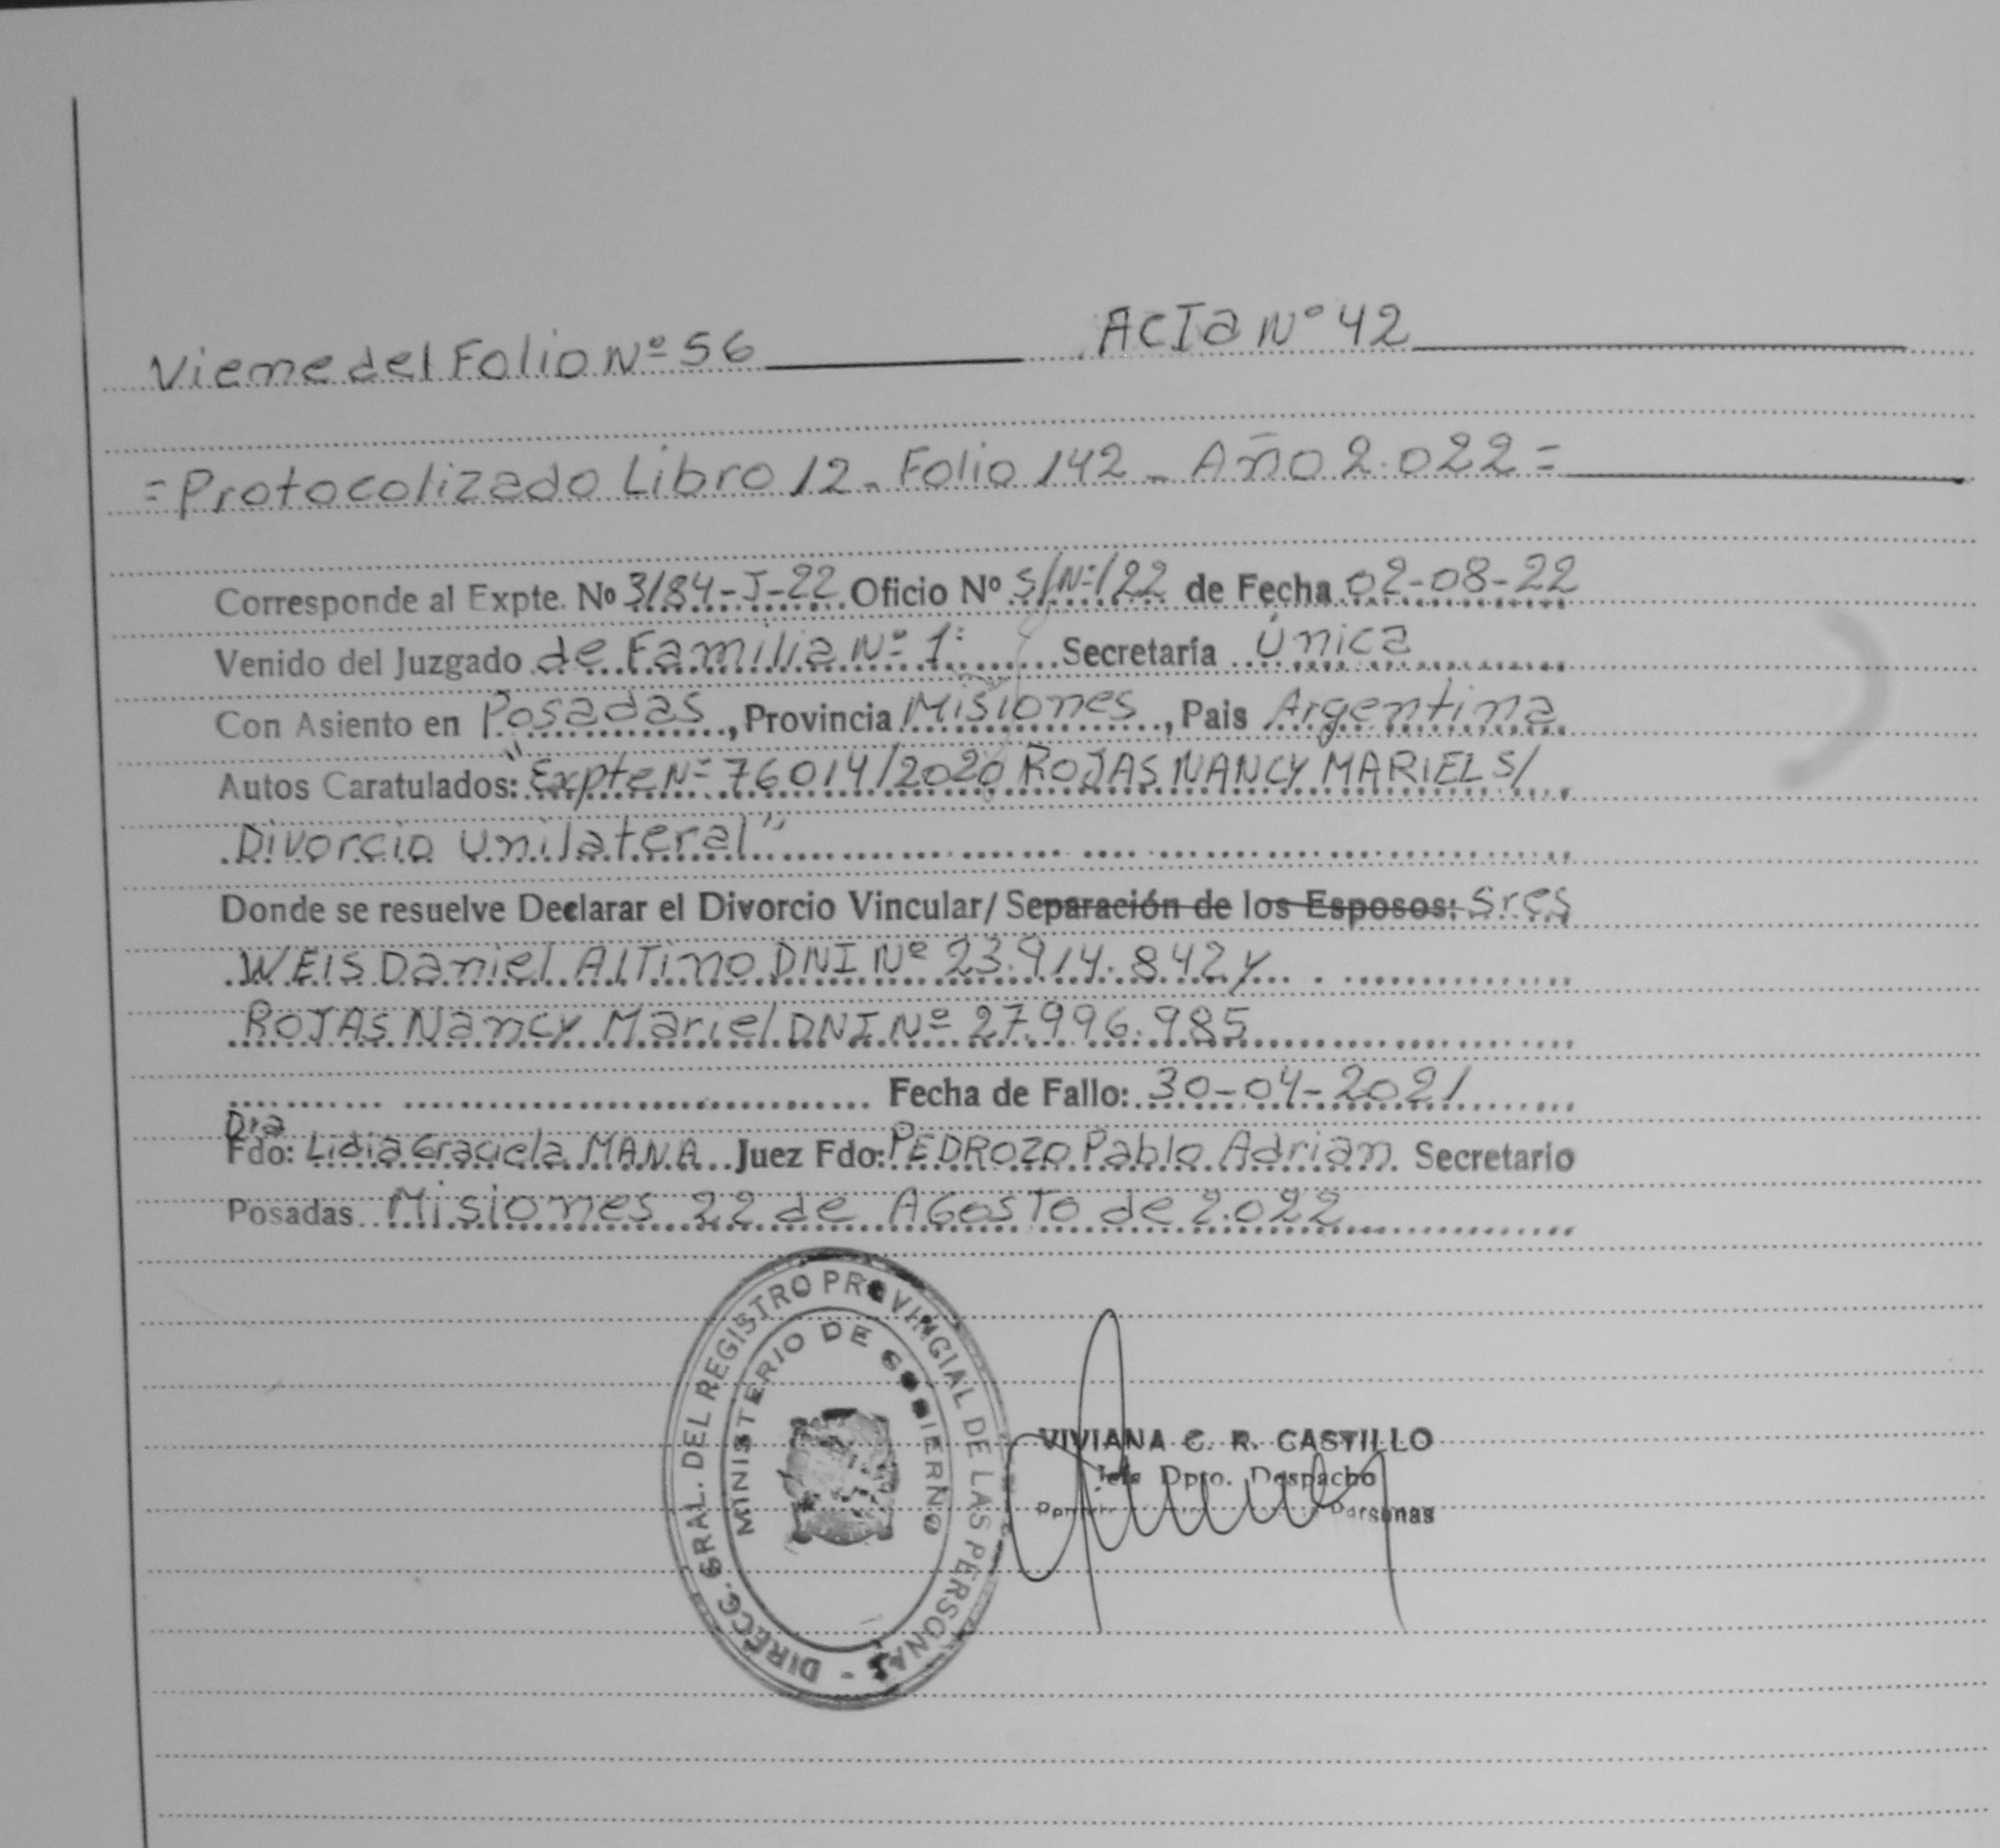 Viene del Folio Nº 56 Acta Nº 42
= Protocolizado Libro 12 - Folio 142 - Año 2.022 =
Corresponde al Expte. Nº 3184-J-22 Oficio Nº S/Nº/22 de Fecha 02-08-22
Venido del Juzgado de Familia Nº 1: Secretaría Única
Con Asiento en Posadas, Provincia Misiones, Pais Argentina
Autos Caratulados: "Expte Nº 76014/2020 ROJAS NANCY MARIEL S/
Divorcio Unilateral"
Donde se resuelve Declarar el Divorcio Vincular/ Separación de los Esposos: Sres
WEIS Daniel Altino DNI Nº 23.914.842 y
ROJAS Nancy Mariel DNI Nº 27.996.985
Fecha de Fallo: 30-04-2021
Dra
Fdo: Lidia Graciela MANA Juez Fdo: PEDROZO Pablo Adrian Secretario
Posadas Misiones 22 de Agosto de 2.022
DIRECC. GRAL. DEL REGISTRO PROVINCIAL DE LAS PERSONAS -
MINISTERIO DE GOBIERNO
VIVIANA C. R. CASTILLO
Jefe Dpto. Despacho
Personas